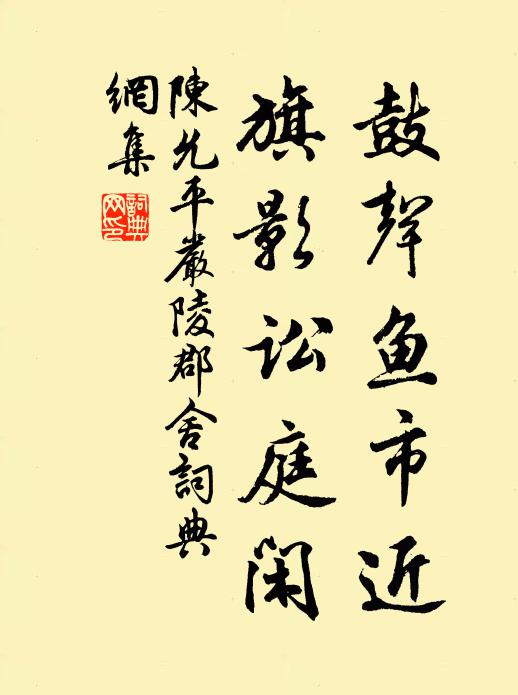 鼓聲鱼市近
旗影訟庭閑
陳允平嚴陵郡舍詞典
網集
詞典
网印